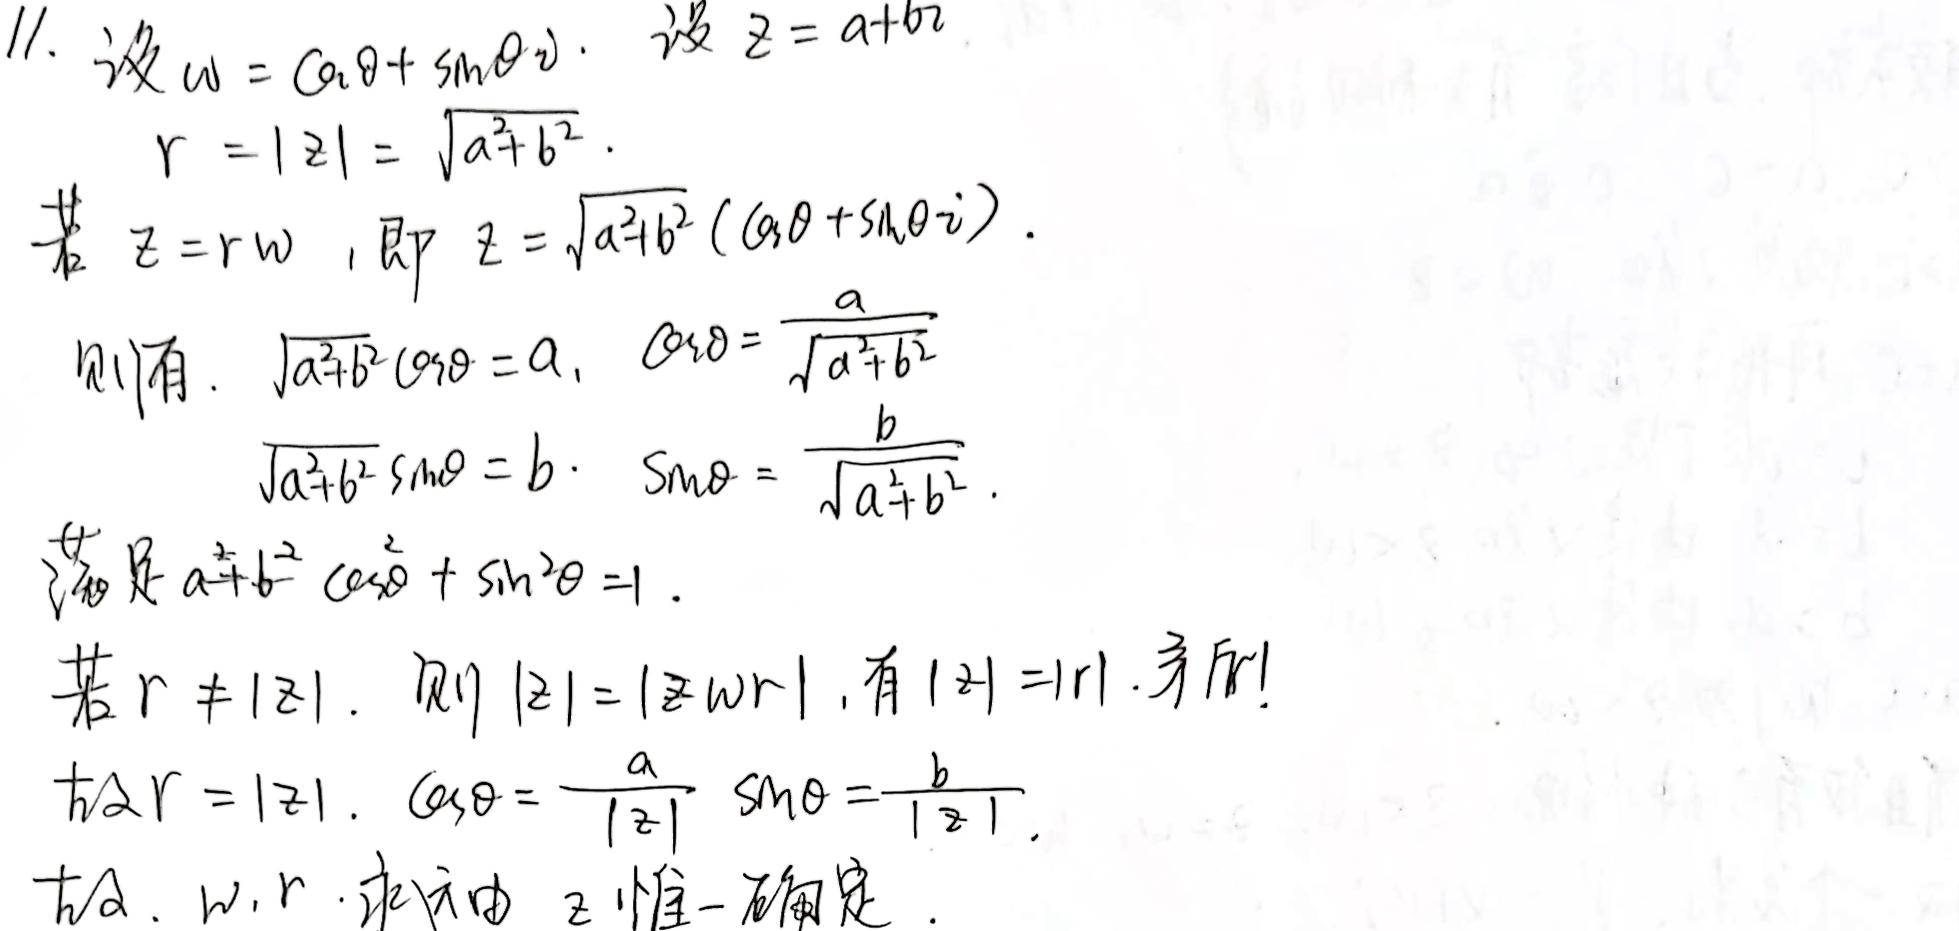 11. 设 w = cosθ + sinθ i. 设 z = a+bi.
r = |z| = √(a²+b²).
若 z = rw, 即 z = √(a²+b²) (cosθ + sinθ i).
则有. √(a²+b²) cosθ = a, cosθ = a/√(a²+b²)
√(a²+b²) sinθ = b. sinθ = b/√(a²+b²).
满足 cos²θ + sin²θ = 1.
若 r ≠ |z|. 则 |z| = |wr|, 有 |z| = |r|. 矛盾!
故 r = |z|. cosθ = a/|z| sinθ = b/|z|.
故. w, r. 永远由 z 惟一确定.